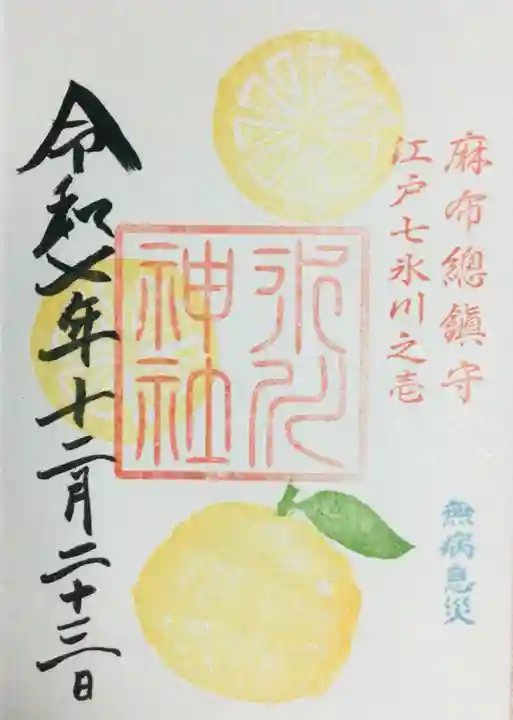 麻布總鎮守
江戸七氷川之壱
無病息災
氷川
神社
令和七年十二月二十三日